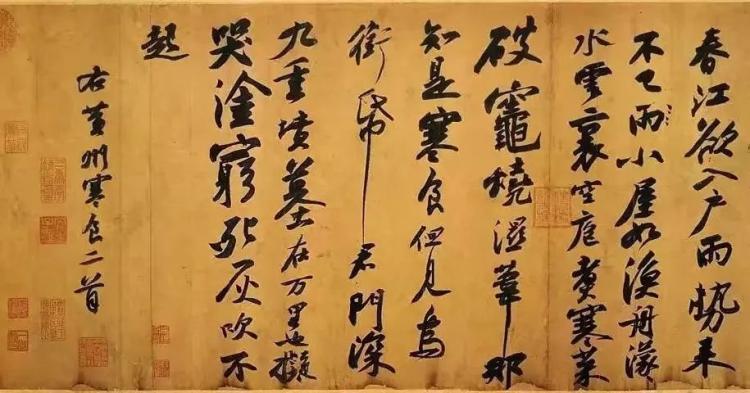 春江欲入戶雨勢来
不已雨小屋如漁舟濛々
水雲裏空庖煮寒菜
破竈燒濕葦那
知是寒食但見烏
銜帋君門深
九重墳墓在万里也擬
哭塗窮死灰吹不
起
右黄州寒食二首